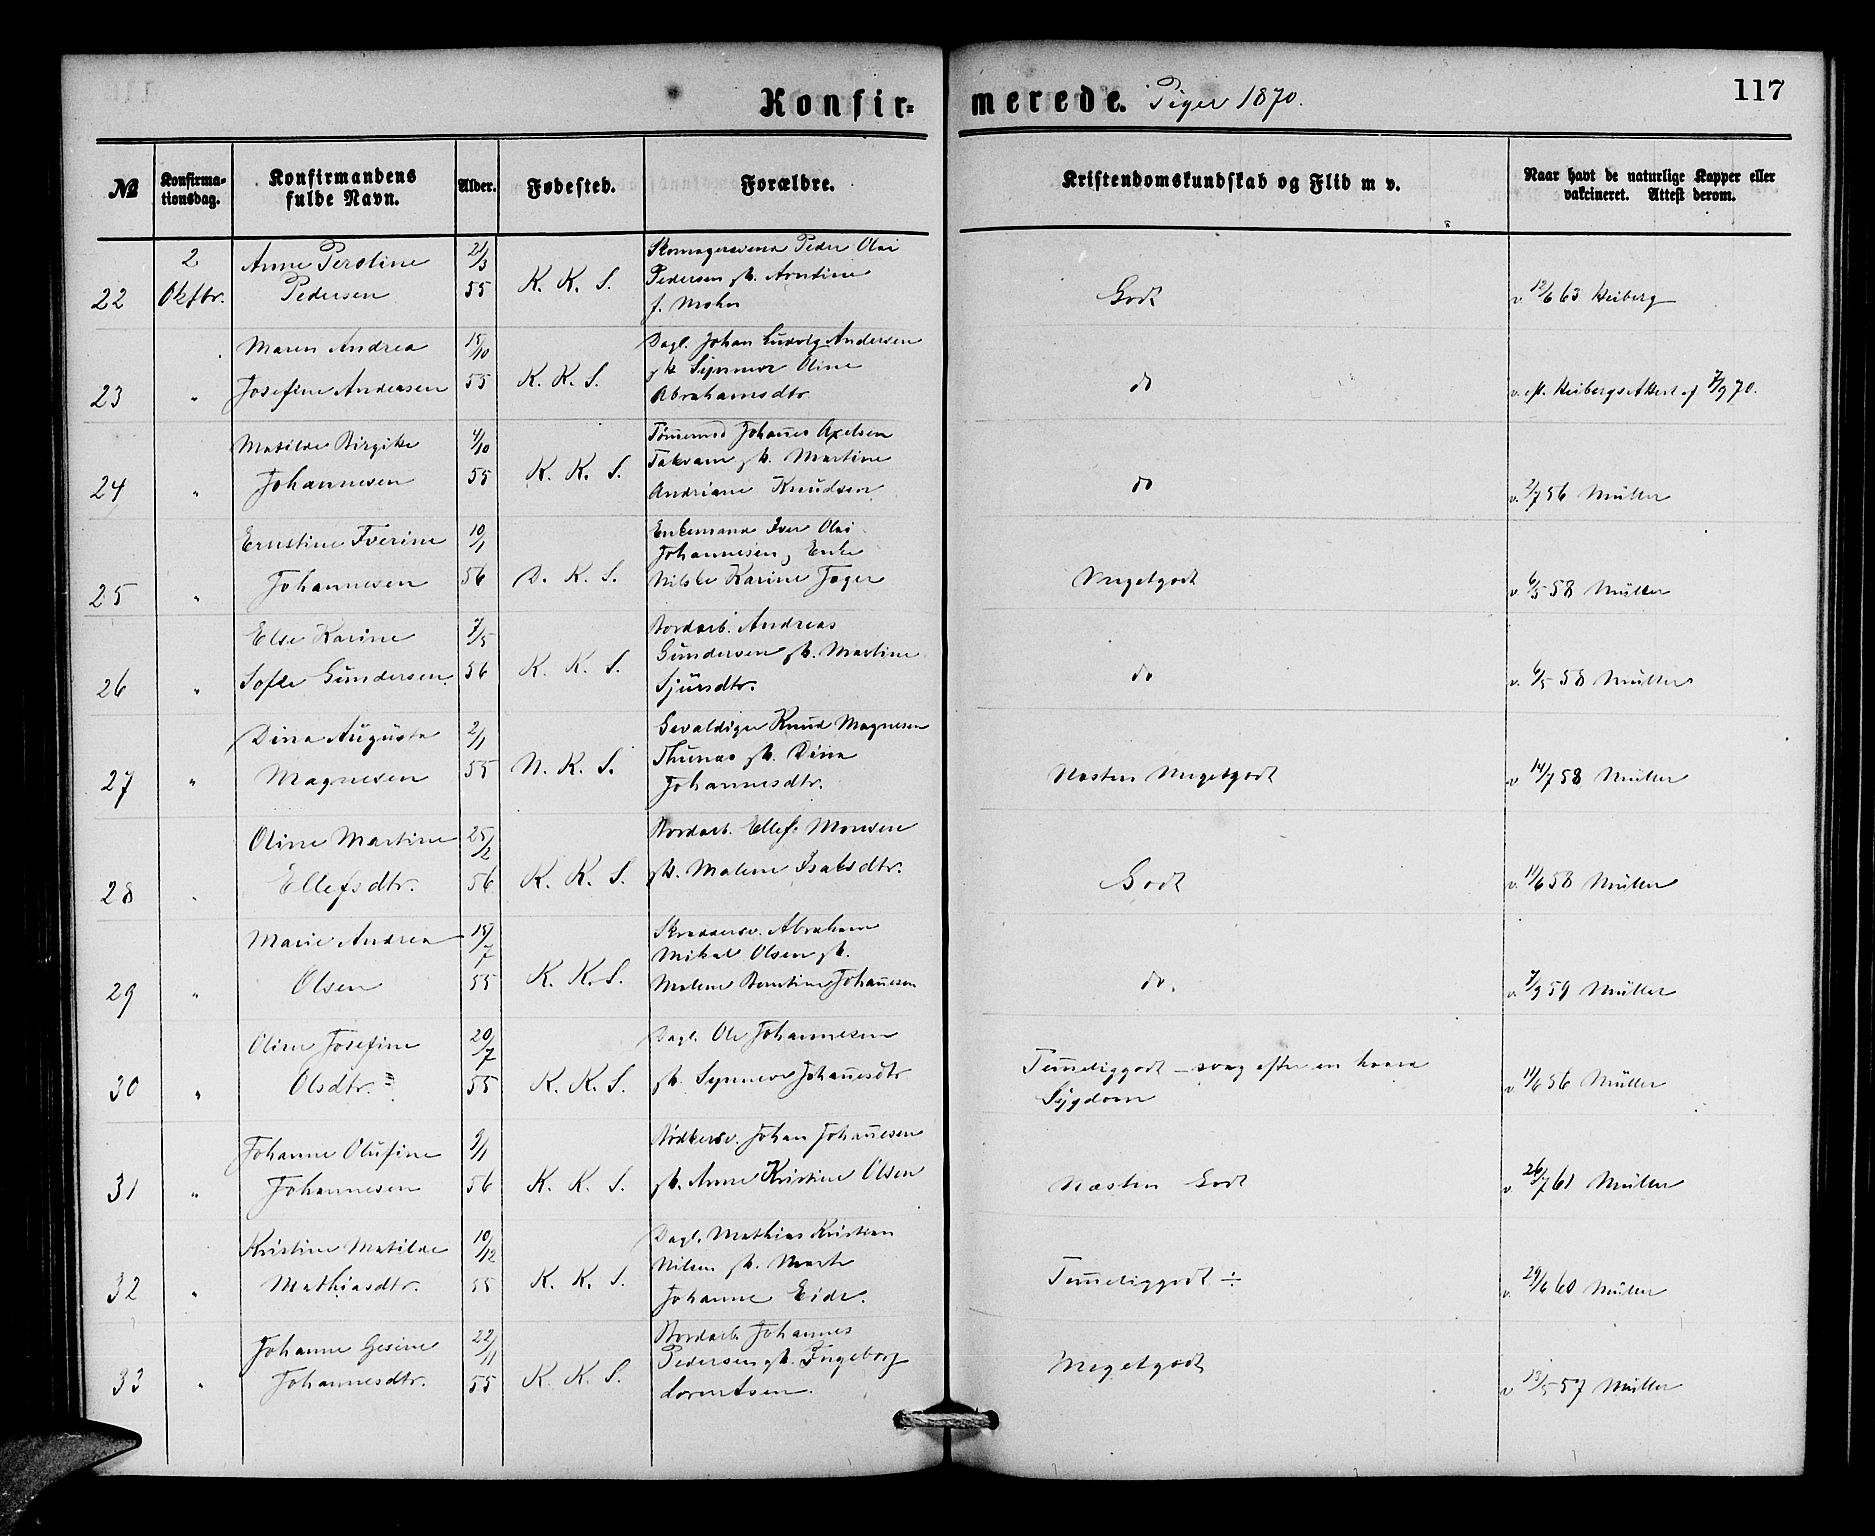 Konfirmerede. Piger 1870. 117
№ Konfirmationsdag. Konfirmandens fulde Navn. Alder. Fødested. Forældre. Kristendomskundskab og Flid m v. Naar havt de naturlige Kopper eller vakcineret. Attest derom.
22 2 Oktbr. Anne Perstine Pedersen 2/3 55 K. K. S. Skomagersvend Peder Olai Pedersen f. Mohn Godt v. 12/6 63 Heiberg
23 " Maren Andrea Josefine Andersen 15/10 55 K. K. S. Dagl. Johan Ludvig Andersen Oline Abrahamsdtr. do v. Heibergs Attest af 7/9 70.
24 " Matilde Birgitte Johannesen 4/10 55 K. K. S. Tømmermd Johañes Axelsen Takvam gh. Martine Andriane Knudsen do v. 2/7 56 Müller
25 " Ernstine Iverine Johannesen 10/1 56 D. K. S. Enkemand Iver Olai Johannesen Nilske Karine Jager Megetgodt v. 6/5 58 Müller
26 " Else Karine Sofie Gundersen 7/5 56 K. K. S. Bordarb. Andreas Gundersen gh. Martine Sjursdtr. do v. 6/5 58 Müller
27 " Dina Augusta Magnesen 2/1 55 N. K. S. Gevaldiger Knud Magnesen gh. Dina Johannesdtr. Næsten Megetgodt v 14/7 58 Müller
28 " Oline Martine Ellefsdtr. 25/2 56 K. K. S. Bordarb. Ellef Monsen gh. Malene Isaksdtr. Godt v. 11/6 58 Müller
29 " Marie Andrea Olsen 15/7 55 K. K. S. Skræddersv. Abraham Mikal Olsen gh. Malene Berntine Johañesen do. v. 7/9 59 Müller
30 " Oline Josefine Olsdtr. 20/7 55 K. K. S. Dagl. Ole Johannesen gh. Synneve Johañesdtr Temeliggodt – svag efter en haard Sygdom v 11/6 56 Müller
31 " Johanne Olufine Johannesen 9/1 56 K. K. S. Bødkersv. Johan Johañesen gh. Anne Kristine Olsen Næsten Godt v. 26/7 61 Müller
32 " Kristine Matilde Mathiasdtr. 10/12 55 K. K. S. Dagl. Mathias Kristian Nilsen gh. Marte Johanne Eide. Temeliggodt ÷ v. 29/6 60 Müller
33 " Johanne Gesine Johannesdtr. 22/11 55 K. K. S. Bordarb. Johannes Pedersen gh. Ingeborg Lorentsen. Megetgodt v 13/5 57 Müller